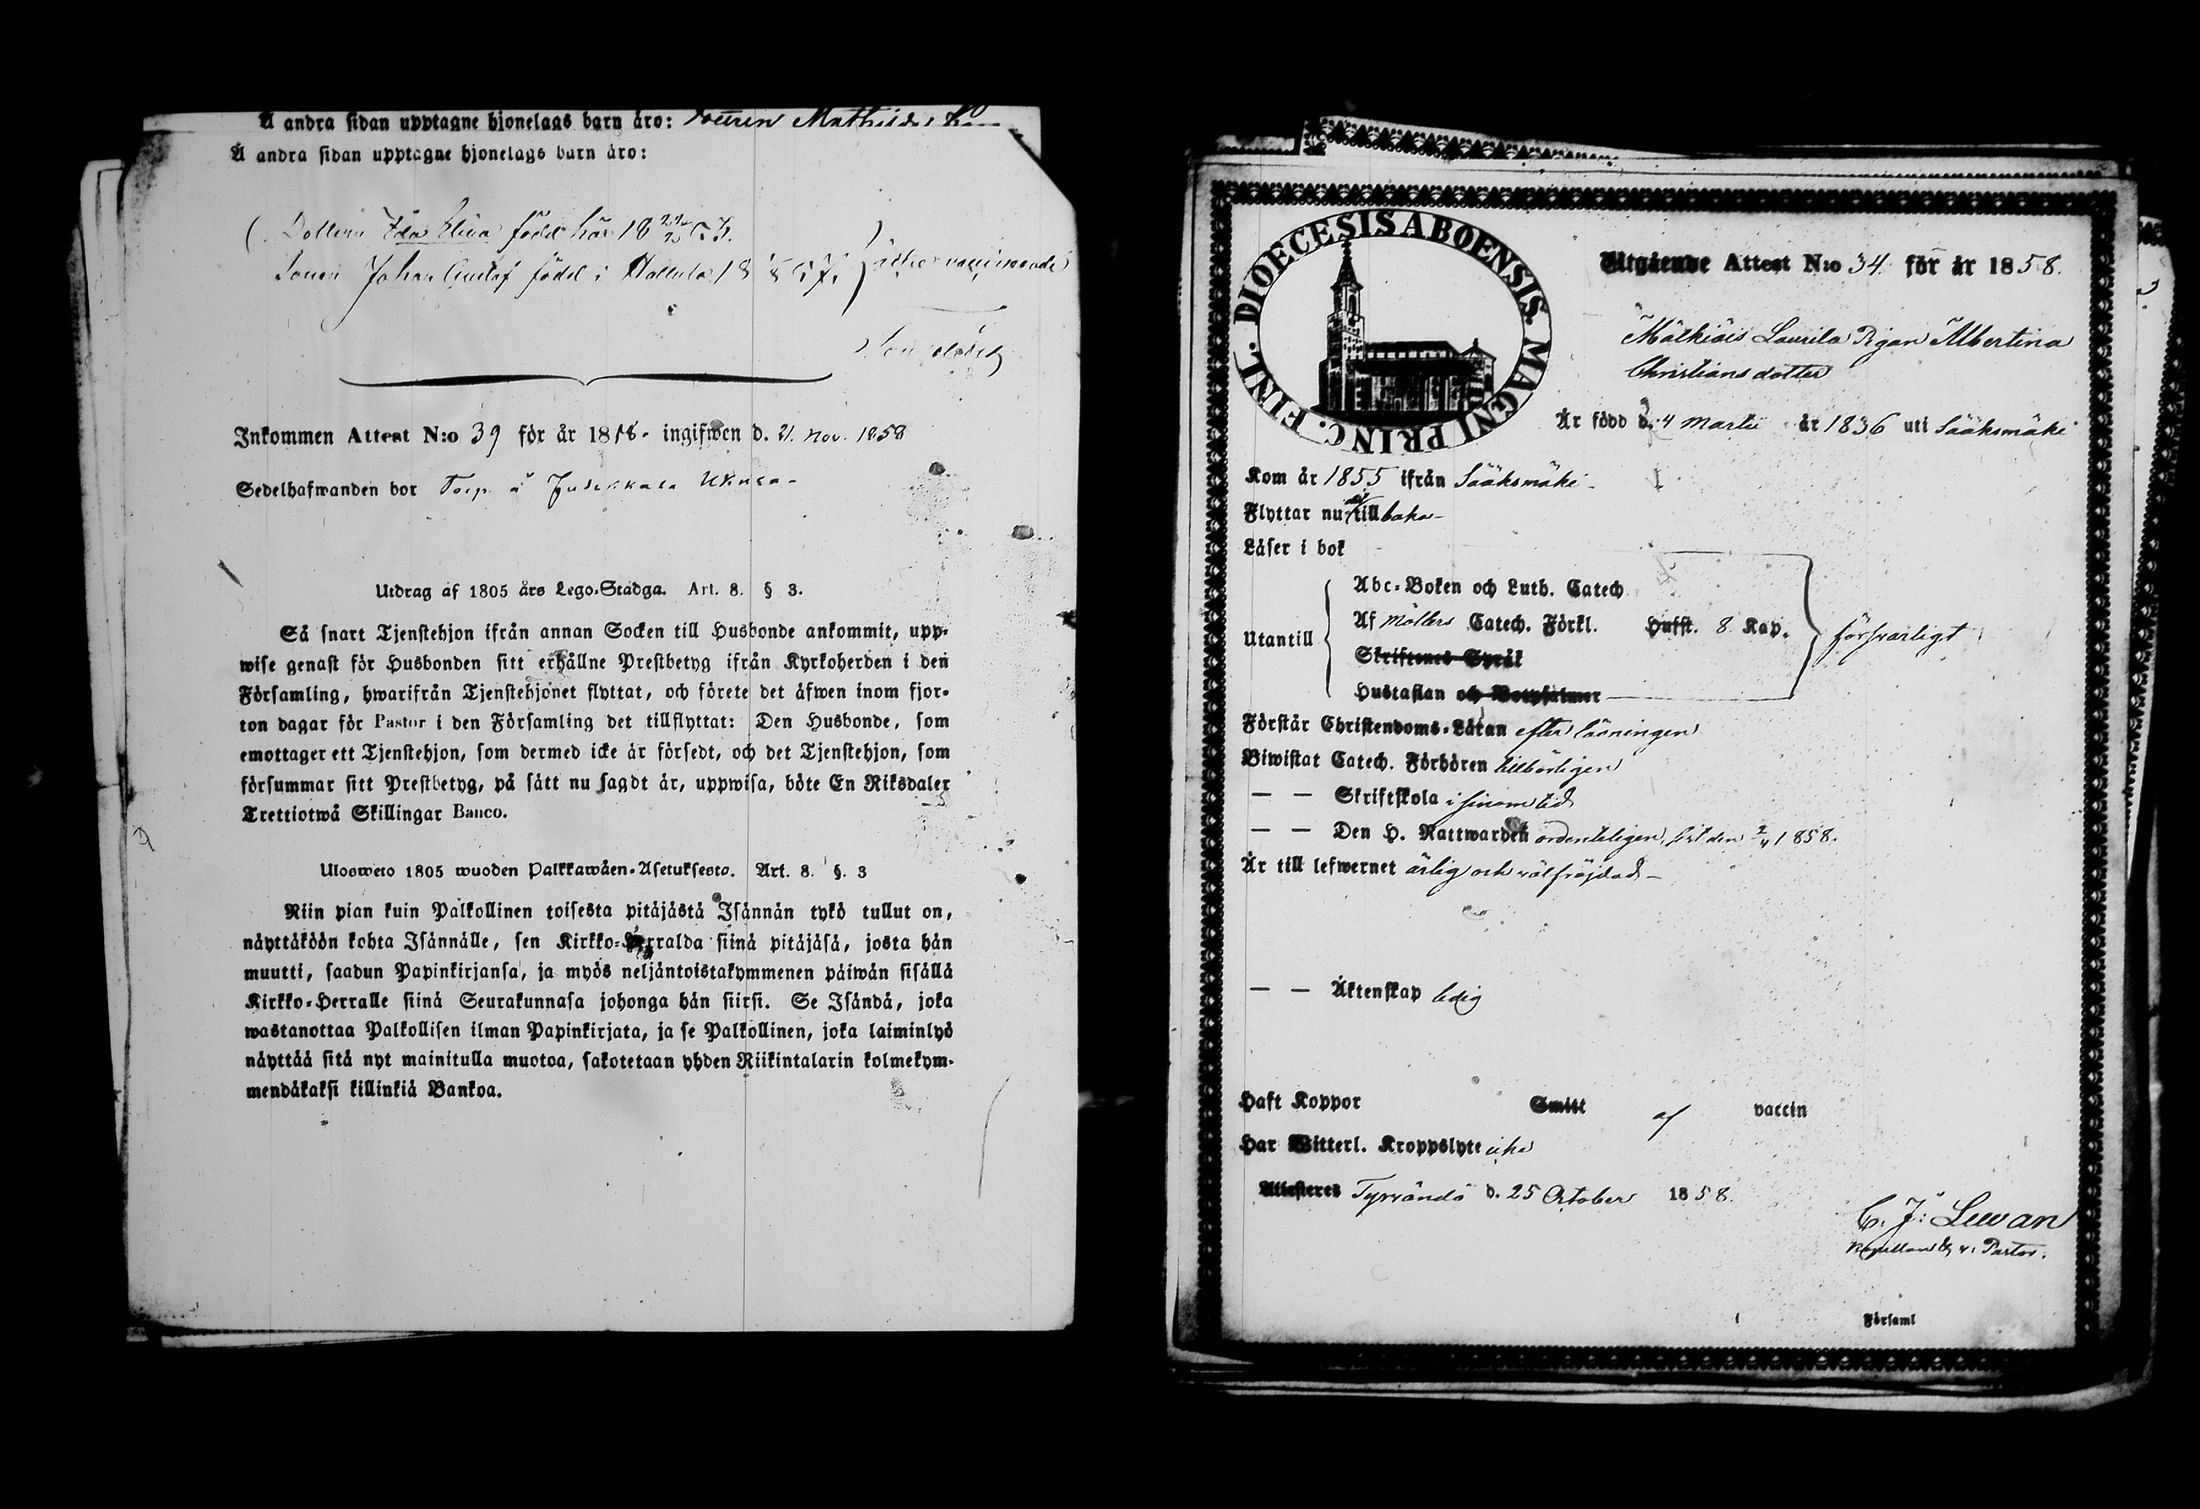 Å andra sidan upptagne hjonelags barn äro:
Å andra sidan upptagne hjonelags barn äro:
Dottern Ida Elina född här 18
Sonen Johan Gustaf född i Hollola 18
Inkommen Attest N:o 39 för år 1858. ingifwen d. 21. Nov. 1858
Sedelhafwanden bor Torp å
Utdrag af 1805 års Lego-Stadga. Art. 8. § 3.
Så snart Tjenstehjon ifrån annan Socken till Husbonde ankommit, upp-
wise genast för Husbonden sitt erhållne Prestbetyg ifrån Kyrkoherden i den
Församling, hwarifrån Tjenstehjonet flyttat, och förete det äfwen inom fjor-
ton dagar för Pastor i den Församling det tillflyttat: Den Husbonde, som
emottager ett Tjenstehjon, som dermed icke är försedt, och det Tjenstehjon, som
försummar sitt Prestbetyg, på sätt nu sagdt är, uppwisa, böte En Riksdaler
Trettiotwå Skillingar Banco.
Ulosweto 1805 wuoden Palkkawäen-Asetuksesta. Art. 8. §. 3
Niin pian kuin Palkollinen toisesta pitäjästä Isännän tykö tullut on,
näyttäköön kohta Isännälle, sen Kirkko-Herralda siinä pitäjäsä, josta hän
muutti, saadun Papinkirjansa, ja myös neljäntoistakymmenen päiwän sisällä
Kirkko-Herralle siinä Seurakunnasa johonga hän siirsi. Se Isändä, joka
wastanottaa Palkollisen ilman Papinkirjata, ja se Palkollinen, joka laiminlyö
näyttää sitä nyt mainitulla muotoa, sakotetaan yhden Riikintalarin kolmekym-
mendäkaksi killinkiä Bankoa.
DIOECESIS ABOENSIS. MAGNI PRINC. FINL.
Utgående Attest N:o 34. för år 1858.
Mälkiäis Laurila Pigan Albertina
Christiansdotter
Är född d. 4 Martii år 1836 uti Sääksmäki
Kom år 1855 ifrån Sääksmäki
Flyttar nu tillbaka
Läser i bok
Abc-Boken och Luth. Catech
Utantill
Af Möllers Catech. Förkl. Hufst. 8 Kap.
försvarligt
Skriftenes Språk
Hustaflan och Botpsalmer
Förstår Christendoms-Läran efter läsningen
Biwistat Catech. Förhören tillbörligen
— — Skriftskola i sinom tid
— — Den H. Nattwarden ordenteligen, sist den 1858.
Är till lefwernet ärlig och välfräjdad
— — Äktenskap ledig
Haft Koppor Smitt af vaccin
Har Witterl. Kroppslyte icke
Attesteres Tyrvändö d. 25 October 1858.
C. J: Lewan
Kapellan & v. Pastor.
Församl